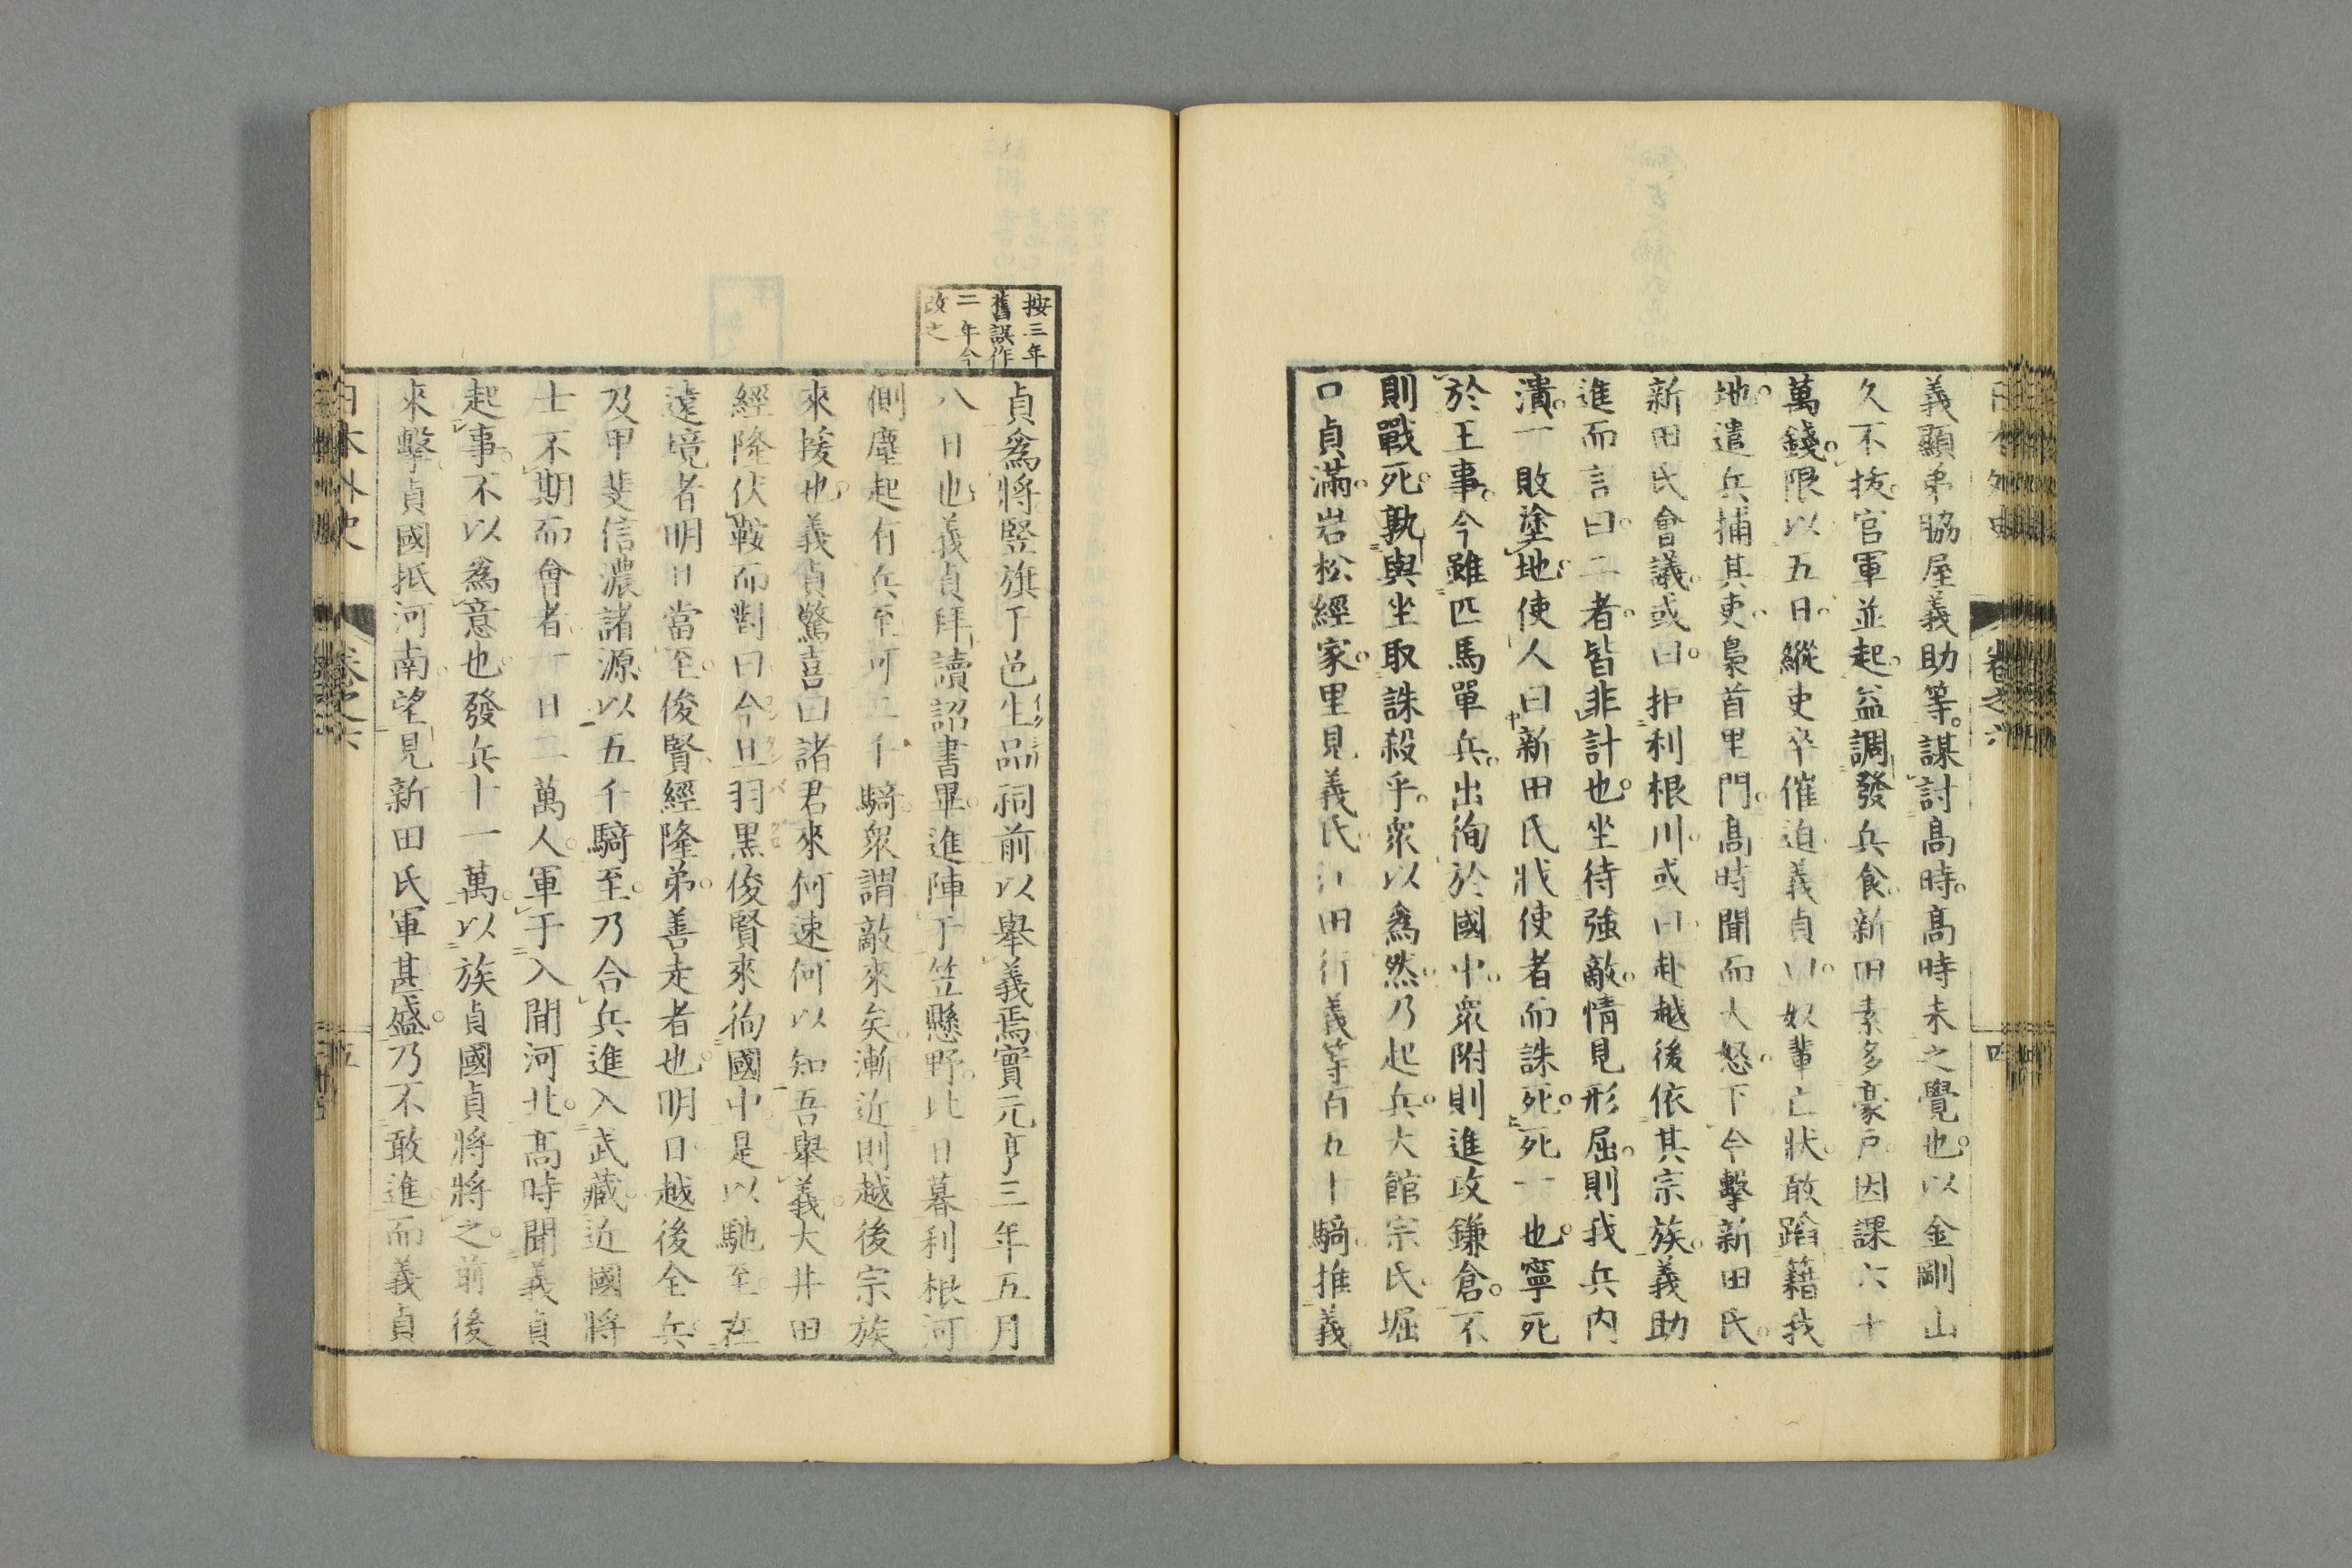 卷之六
四
義顯弟脇屋義助等謀討高時高時未之覺也以金剛山
久不拔官軍並起益調發兵食新田素多豪戶因課六十
萬錢限以五日縱吏卒催迫義貞曰奴輩亡狀敢蹈藉我
地遣兵捕其吏梟首里門高時聞而大怒下令擊新田氏
新田氏會議或曰拒利根川或曰赴越後依其宗族義助
進而言曰二者皆非計也坐待強敵情見形屈則我兵內
潰一敗塗地使人曰新田氏戕使者而誅死死一也寧死
於王事今雖匹馬單兵出徇於國中眾附則進攻鎌倉不
則戰死孰與坐取誅殺乎眾以為然乃起兵大館宗氏堀
口貞滿岩松經家里見義氏江田行義等百五十騎推義
按三年
舊誤作
二年今
改之
貞為將竪旗于邑生品祠前以舉義焉實元亨三年五月
八日也義貞拜讀詔書畢進陣于笠懸野此日暮利根河
側塵起有兵至可二千騎眾謂敵來矣漸近則越後宗族
來援也義貞驚喜曰諸君來何速何以知吾舉義大井田
經隆伏鞍而對曰今旦羽黑俊賢來徇國中是以馳至在
遠境者明日當至俊賢經隆弟善走者也明日越後全兵
及甲斐信濃諸源以五千騎至乃合兵進入武藏近國將
士不期而會者一日二萬人軍于入間河北高時聞義貞
起事不以為意也發兵十一萬以族貞國貞將將之前後
來擊貞國抵河南望見新田氏軍甚盛乃不敢進而義貞
日本外史
卷之六
五